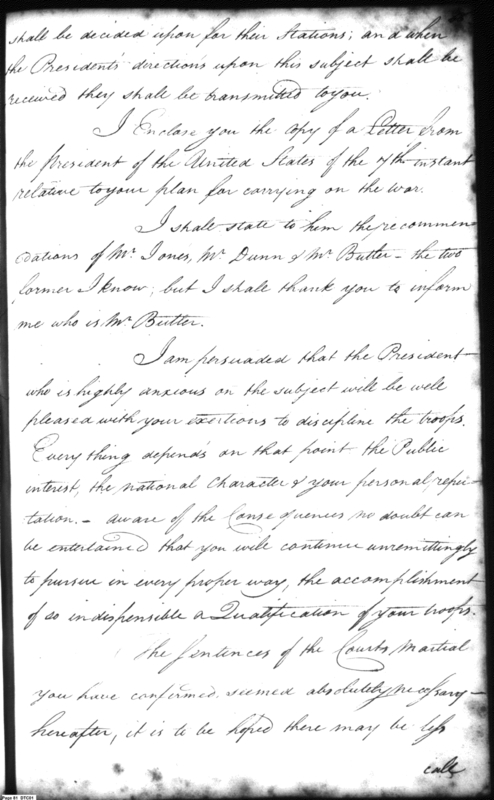 shall be decided upon for their Stations; and when
the Presidents' directions upon this subject shall be
received they shall be transmitted to you.
I Enclose you the copy of a Letter from
the President of the United States of the 7th instant
relative to your plan for carrying on the war.
I shall state to him the recommen
dations of Mr. Jones, Mr Dunn & Mr Butler - the two
former I know; but I shall thank you to inform
me who is Mr Butler.
I am persuaded that the President
who is highly anxious on the subject will be well
pleased with your exertions to discipline the troops.
Every thing depends on that point the Public
interest, the national Character & your personal, repu-
tation. - aware of the Consequences no doubt can
be entertained that you will continue unremittingly
to pursue in every proper way, the accomplishment
of so indispensible a Qualification of your troops.
The Sentences of the Courts Martial
you have confirmed seemed absolutely necessary -
hereafter, it is to be hoped there may be less
call
Page 51 DTC01